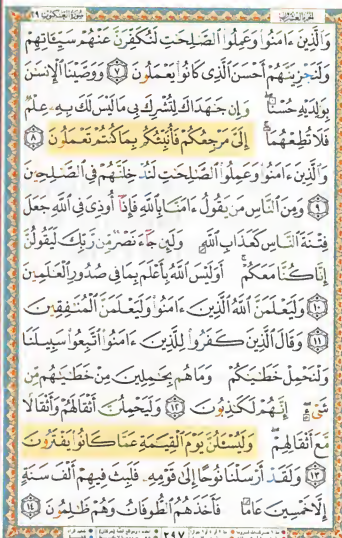 سُورَةُ العَنكَبُوت ٢٩
الجُزءُ العِشرُون
وَالَّذِينَ ءَامَنُوا وَعَمِلُوا الصَّٰلِحَٰتِ لَنُكَفِّرَنَّ عَنْهُمْ سَيِّـَٔاتِهِمْ
وَلَنَجْزِيَنَّهُمْ أَحْسَنَ الَّذِى كَانُوا يَعْمَلُونَ ٧ وَوَصَّيْنَا الْإِنسَٰنَ
بِوَٰلِدَيْهِ حُسْنًا ۖ وَإِن جَٰهَدَاكَ لِتُشْرِكَ بِى مَا لَيْسَ لَكَ بِهِۦ عِلْمٌ
فَلَا تُطِعْهُمَآ ۚ إِلَىَّ مَرْجِعُكُمْ فَأُنَبِّئُكُم بِمَا كُنتُمْ تَعْمَلُونَ ٨
وَالَّذِينَ ءَامَنُوا وَعَمِلُوا الصَّٰلِحَٰتِ لَنُدْخِلَنَّهُمْ فِى الصَّٰلِحِينَ
٩ وَمِنَ النَّاسِ مَن يَقُولُ ءَامَنَّا بِاللَّهِ فَإِذَآ أُوذِىَ فِى اللَّهِ جَعَلَ
فِتْنَةَ النَّاسِ كَعَذَابِ اللَّهِ وَلَئِن جَآءَ نَصْرٌ مِّن رَّبِّكَ لَيَقُولُنَّ
إِنَّا كُنَّا مَعَكُمْ ۚ أَوَلَيْسَ اللَّهُ بِأَعْلَمَ بِمَا فِى صُدُورِ الْعَٰلَمِينَ
١٠ وَلَيَعْلَمَنَّ اللَّهُ الَّذِينَ ءَامَنُوا وَلَيَعْلَمَنَّ الْمُنَٰفِقِينَ
١١ وَقَالَ الَّذِينَ كَفَرُوا لِلَّذِينَ ءَامَنُوا اتَّبِعُوا سَبِيلَنَا
وَلْنَحْمِلْ خَطَٰيَٰكُمْ وَمَا هُم بِحَٰمِلِينَ مِنْ خَطَٰيَٰهُم مِّن
شَىْءٍ ۖ إِنَّهُمْ لَكَٰذِبُونَ ١٢ وَلَيَحْمِلُنَّ أَثْقَالَهُمْ وَأَثْقَالًا
مَّعَ أَثْقَالِهِمْ ۖ وَلَيُسْـَٔلُنَّ يَوْمَ الْقِيَٰمَةِ عَمَّا كَانُوا يَفْتَرُونَ
١٣ وَلَقَدْ أَرْسَلْنَا نُوحًا إِلَىٰ قَوْمِهِۦ فَلَبِثَ فِيهِمْ أَلْفَ سَنَةٍ
إِلَّا خَمْسِينَ عَامًا فَأَخَذَهُمُ الطُّوفَانُ وَهُمْ ظَٰلِمُونَ ١٤
٣٩٧